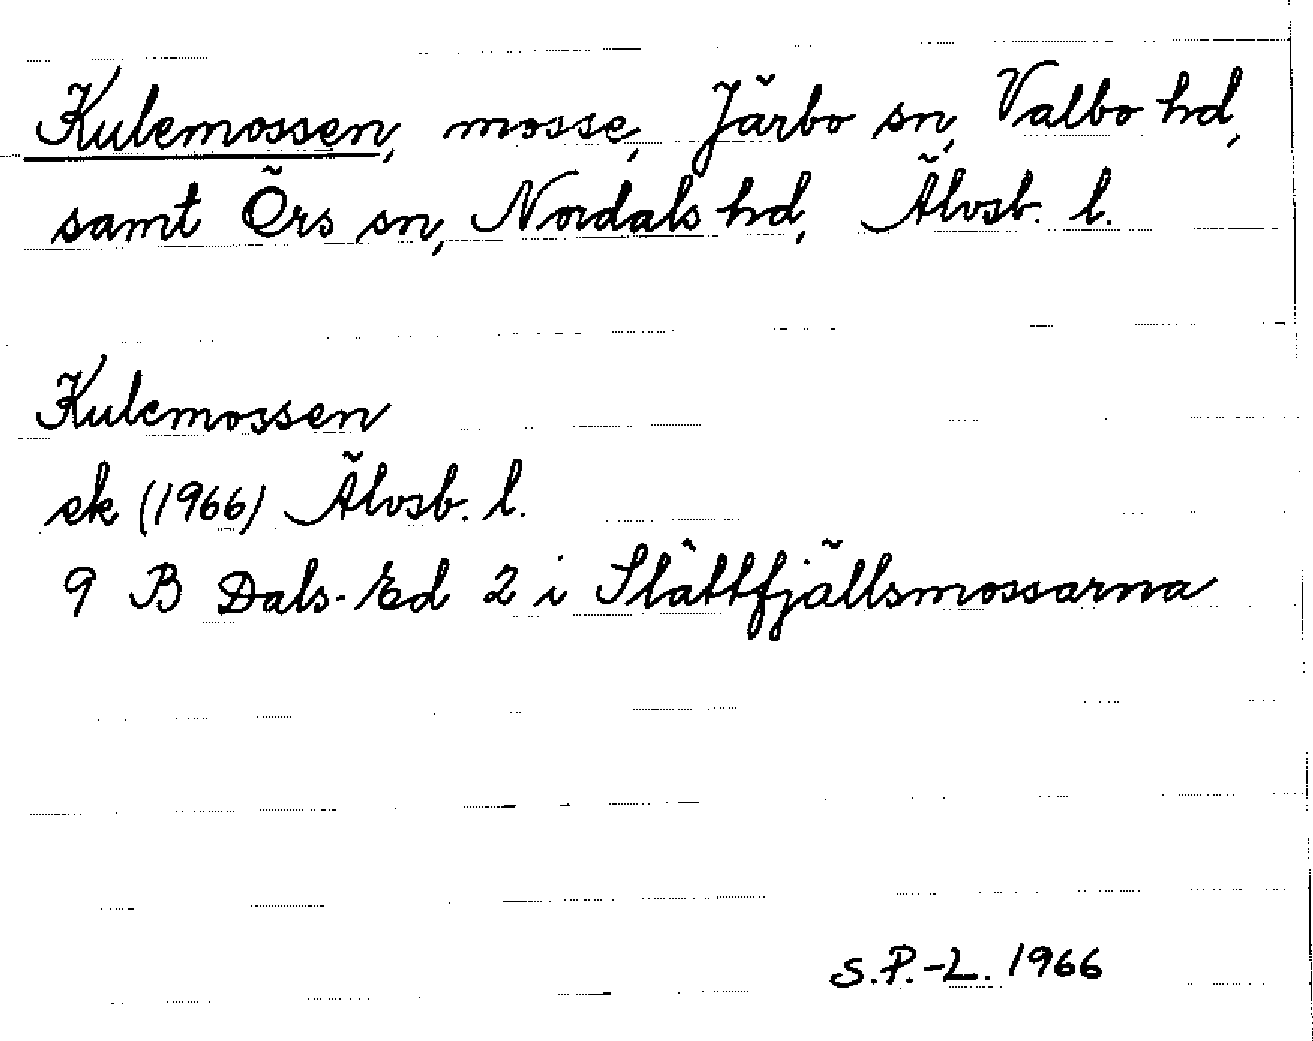 Kulemossen, mosse, Järbo sn, Valbo hd,
samt Örs sn, Nordals hd, Älvsb. l.
Kulemossen
ek (1966) Älvsb. l.
9 B Dals-Ed 2 i Slättfjällsmossarna
S.P.-L. 1966